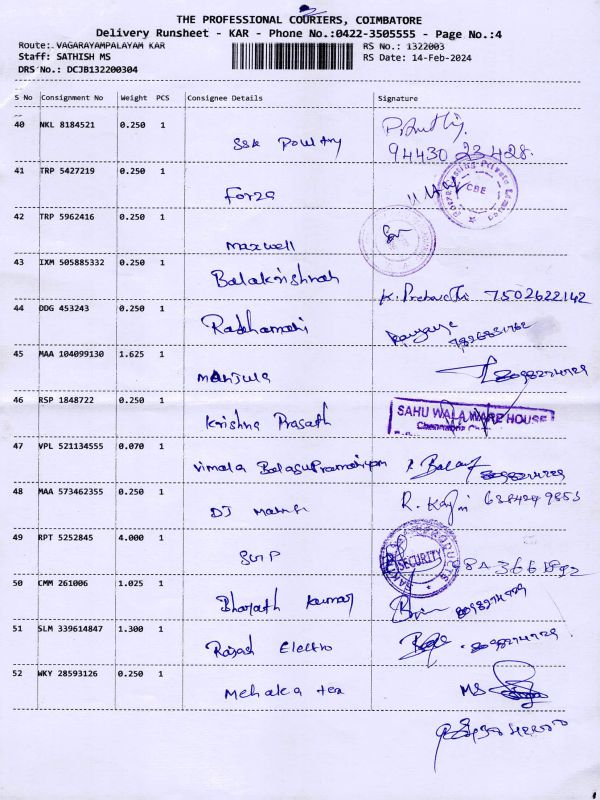 THE PROFESSIONAL COURIERS, COIMBATORE
Delivery Runsheet - KAR - Phone No.:0422-3505555 - Page No.:4
Route: VAGARAYAMPALAYAM KAR
RS No.: 1322003
Staff: SATHISH MS
RS Date: 14-Feb-2024
DRS No.: DCJB132200304
S No Consignment No Weight PCS Consignee Details Signature
40 NKL 8184521 0.250 1
SSK Poultry
94430 23428
41 TRP 5427219 0.250 1
Forza
CBE
42 TRP 5962416 0.250 1
Maxwell
43 IXM 505885332 0.250 1
Balakrishnan
7502622142
44 DDG 453243 0.250 1
Radhamani
45 MAA 104099130 1.625 1
Manjula
46 RSP 1848722 0.250 1
Krishna Prasath
SAHU WALA WARE HOUSE
47 VPL 521134555 0.070 1
Vimala Balasupramaniyan
48 MAA 573462355 0.250 1
DJ
49 RPT 5252845 4.000 1
SECURITY
50 CMM 261006 1.025 1
Bharath Kumar
51 SLM 339614847 1.300 1
Electro
52 WKY 28593126 0.250 1
Mehala tex
MS